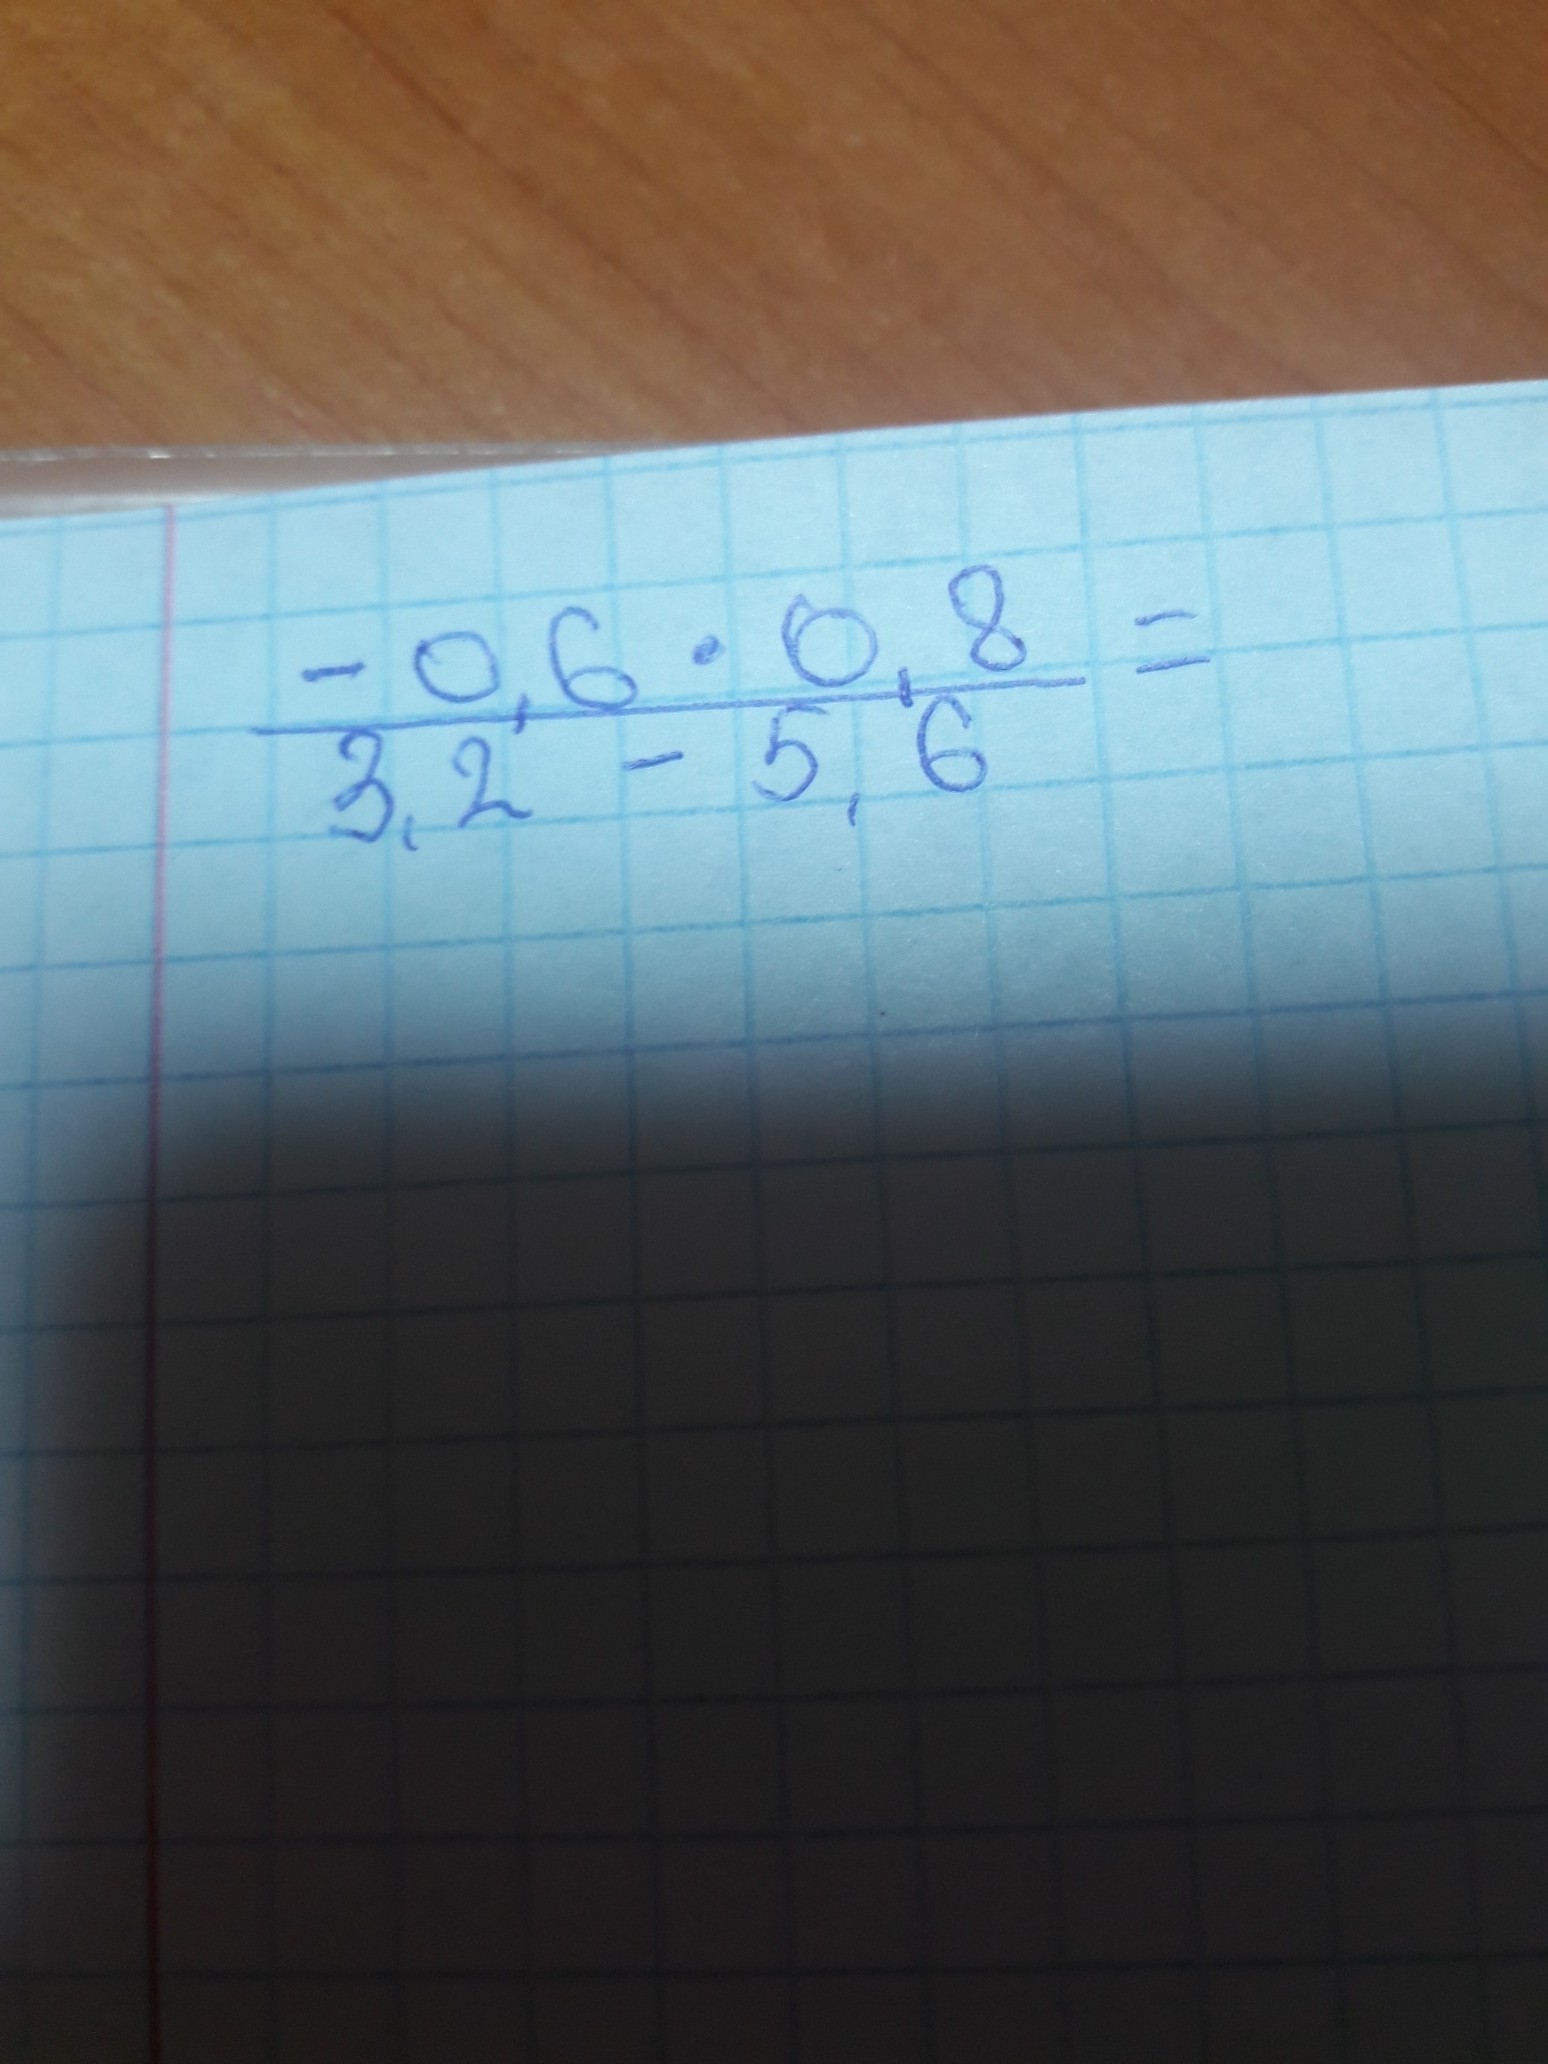 - 0,6 · 0,8 =
3,2 - 5,6